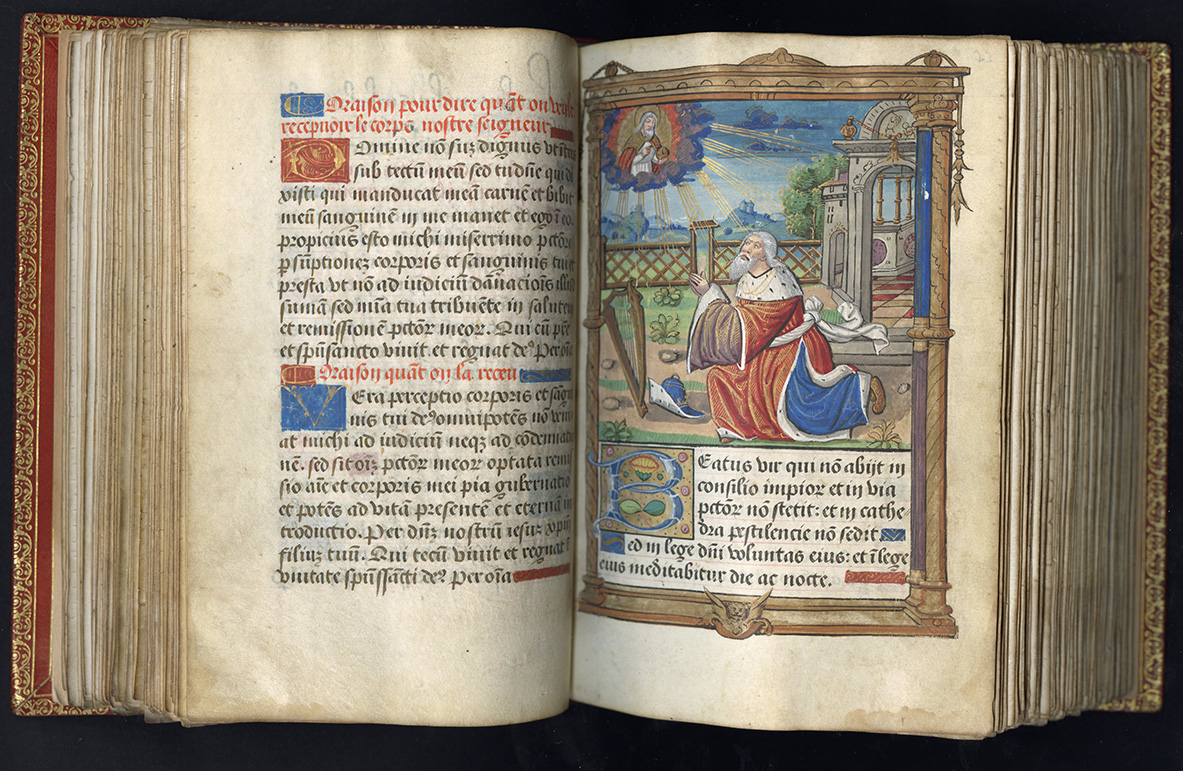 Oraison pour dire quãt on veult
recepuoir le corps nostre seigneur
Domine nõ suz dignus vt ĩtres
sub tectũ meũ sed tu dñe qui di
xisti qui manducat meã carnẽ et bibit
meũ sanguinẽ in me manet et ego ĩ eo
propicius esto michi miserrimo pctõri
p sũptionez corporis et sanguinis tui et
presta vt nõ ad iudiciũ dãnaciõis illud
sumã sed mĩa tua tribuẽte in salutem
et remissionẽ pctõr meor. Qui cũ pr̃e
et spũsancto viuit et regnat deꝰ Per oĩa
Oraison quãt on la receu
Vera perceptio corporis et sãgui
nis tui deꝰ omnipotẽs nõ veni
at michi ad iudiciũ neqz ad cõdemnatio
nẽ. sed sit oĩz pctõr meor optata remi
sio aĩe et corporis mei pia gubernatio
et potẽs ad vitã presentẽ et eternã in
troductio. Per dñz nostrũ iesuz xp̃m
filiuz tuũ. Qui tecũ viuit et regnat ĩ
vnitate spũssãcti deꝰ Per oĩa
Beatus vir qui nõ abijt in
consilio impior et in via
pctõr nõ stetit: et in cathe
dra pestilencie nõ sedit
Sed in lege dñi voluntas eius: et ĩ lege
eius meditabitur die ac nocte.